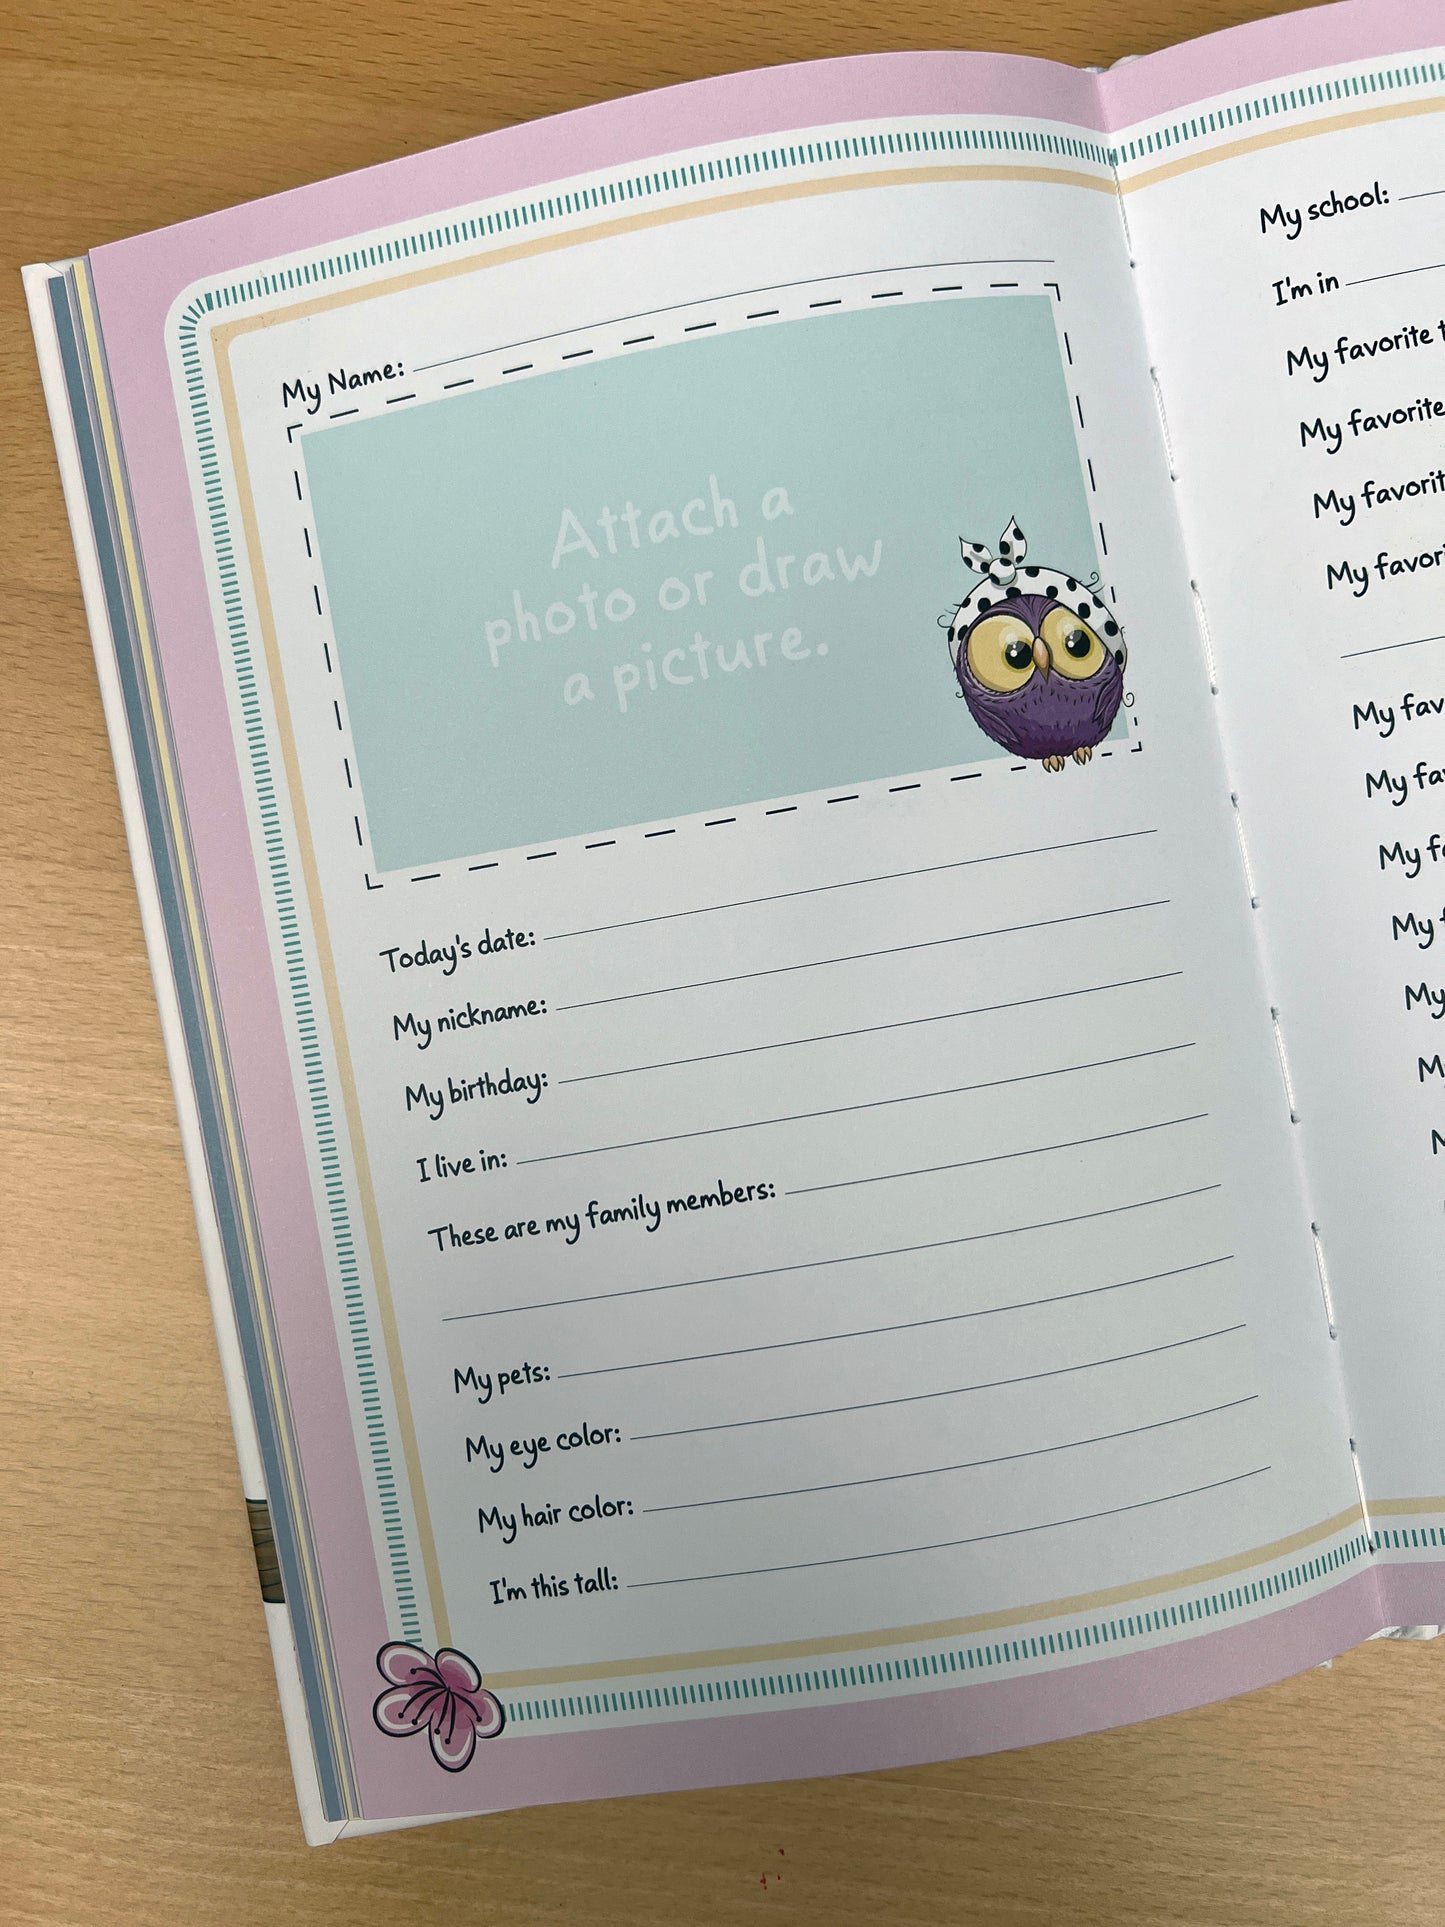 My Name:
Attach a
photo or draw
a picture.
Today's date:
My nickname:
My birthday:
I live in:
These are my family members:
My pets:
My eye color:
My hair color:
I'm this tall:
My school:
I'm in
My favorite
My favorite
My favorit
My favori
My fav
My fa
My f
My
My
M